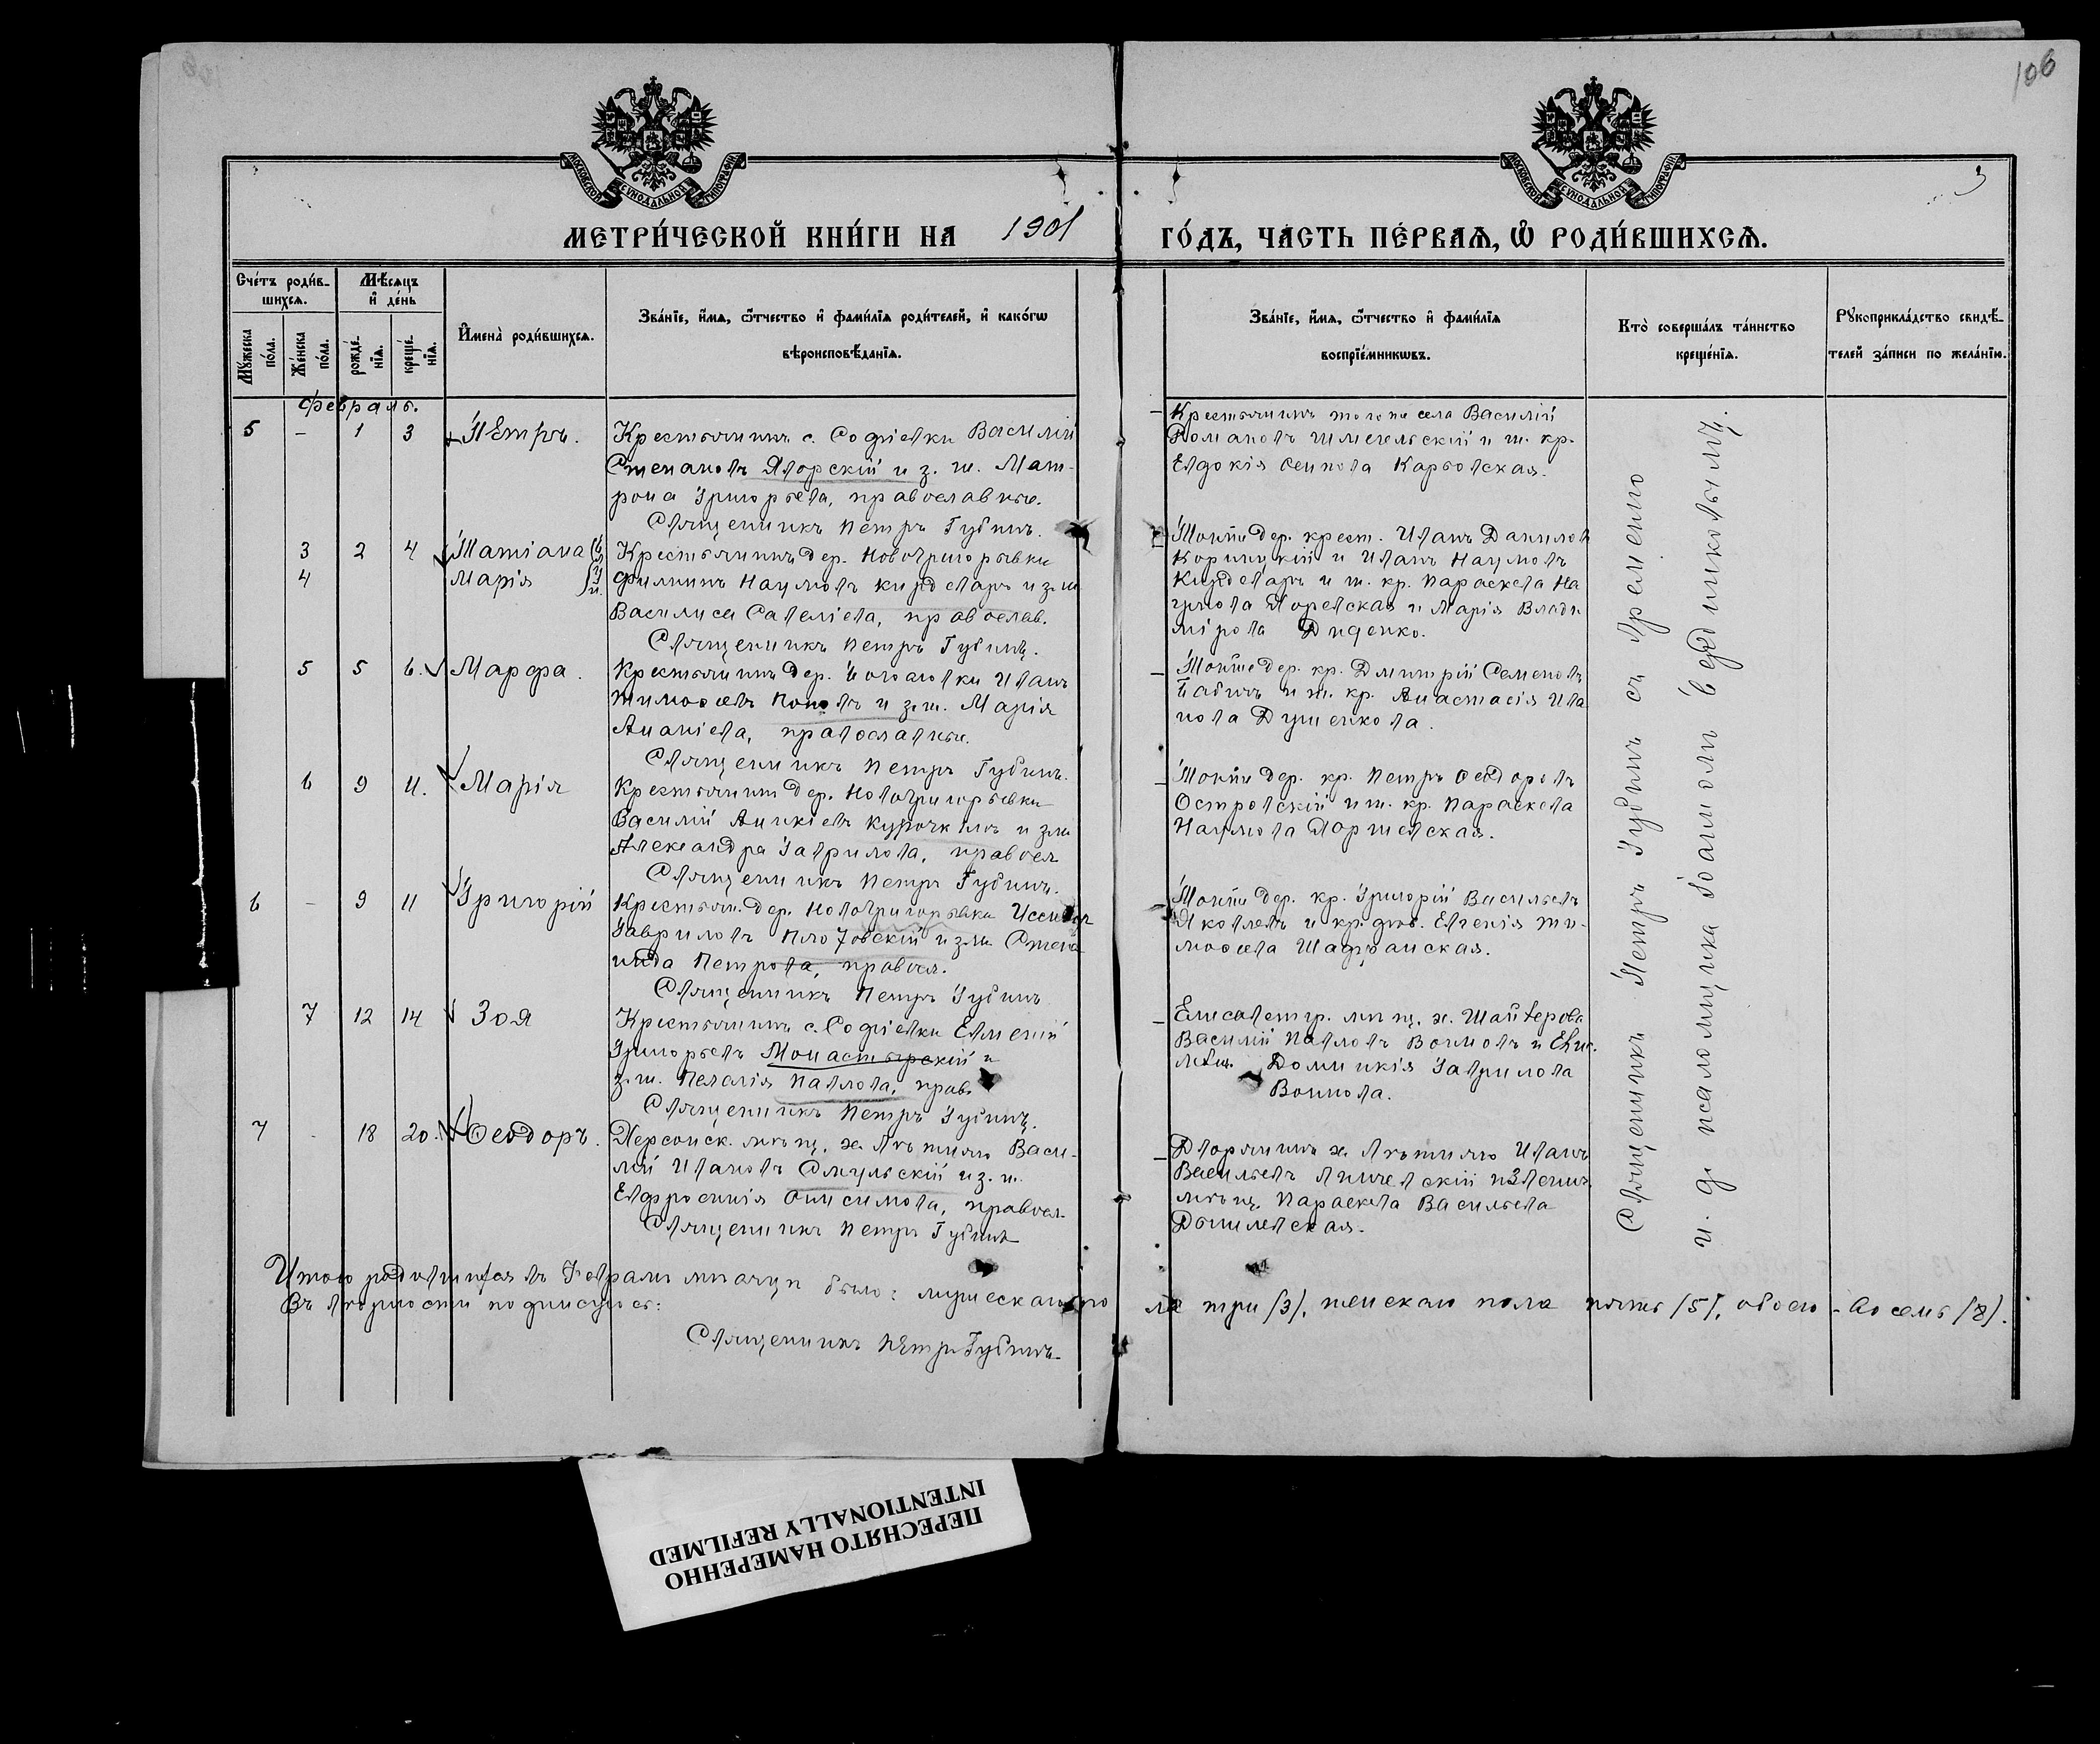 106
МОСКОВСКОЙ СѴНОДАЛЬНОЙ ТИПОГРАФІИ
МОСКОВСКОЙ СѴНОДАЛЬНОЙ ТИПОГРАФІИ
3
МЕТРИ́ЧЕСКОЙ КНИ́ГИ НА 1901 ГО́ДЪ, ЧА́СТЬ ПЕ́РВАѦ, Ѽ РОДИ́ВШИХСѦ.
Сче́тъ роди́в-
шихсѧ.
Мꙋ́жеска
по́ла.
Же́нска
по́ла.
Мѣ́сѧцъ
и҆ де́нь
рожде́-
нїѧ.
креще́-
нїѧ.
И҆мена̀ роди́вшихсѧ.
Зва́нїе, и҆́мѧ, ѻ҆́тчество и҆ фами́лїѧ роди́телей, и҆ како́гѡ
вѣроисповѣ́данїѧ.
Зва́нїе, и҆́мѧ, ѻ҆́тчество и҆ фами́лїѧ
воспрїе́мникѡвъ.
Кто̀ соверша́лъ та́инство
креще́нїѧ.
Рꙋкоприкла́дство свидѣ́-
телей за́писи по жела́нїю.
Февраль.
5 - 1 3 Петръ.
Крестьянинъ с. Софіевки Василій
Степановъ Яворскій и з. ж. Мат-
рона Григорьева, православные.
Священникъ Петръ Губинъ.
Крестьянинъ того же села Василій
Романовъ Шмегельскій и ж. кр.
Евдокія Осипова Карбовская.
3 2 4 Татіана
4 Марія
Крестьянинъ дер. Новогригорьевки
Филиппъ Наумовъ Кирделарь и з. ж.
Василиса Савеліева, православ.
Священникъ Петръ Губинъ.
Той же дер. крест. Иванъ Данилов
Коришукій и Иванъ Наумовъ
Кирделаръ и ж. кр. Параскева На
умова и Марія Влади
мірова Диденко.
5 5 6. Марфа.
Крестьянинъ дер. Иванъ
Тимофеевъ Поповъ и з. ж. Марія
Ананіева, православные.
Священникъ Петръ Губинъ.
Той же дер. кр. Димитрій Семеновъ
Бабичъ и ж. кр. Анастасія Ива
нова Душенкова.
6 9 11. Марія
Крестьянинъ дер. Новогригорьевки
Василій Аникіевъ Курочкинъ и з. ж.
Александра Гаврилова, правосл
Священникъ Петръ Губинъ.
Той же дер. кр. Петръ Феодоровъ
Островскій и ж. кр. Параскева
Наумова Гаржевская.
6 - 9 11 Григорій
Крестьян. дер. Новогригорьевки
Гавриловъ и з. ж. Степа
нида Петрова, правосл.
Священникъ Петръ Губинъ
Той же дер. кр. Григорій Васильевъ
Яковлевъ и кр. дѣв. Евгенія Ти-
мофеева Шафранская.
7 12 14 Зоя
Крестьянинъ с. Софіевки Евмений
Григорьевъ Монастырскій и
з. ж. Пелагія Павлова, прав.
Священникъ Петръ Губинъ.
Елисаветгр. мѣщ. х. Шайтерова
Василій Павловъ Воиновъ и
мѣщ. Домникія Гаврилова
Воинова.
7 - 18 20. Феодоръ.
Херсонск. мѣщ. х. Лютино Васи-
лій Ивановъ Смульскій и з. ж.
Евфросинія Онисимова, правосл.
Священникъ Петръ Губинъ
Дворянинъ х. Лютино Иванъ
Васильевъ
мѣщ. Параскева Васильева
Данилевская.
Священникъ Петръ Губинъ съ временно
и. д. псаломщика Іоанномъ
Итого родившихся въ Феврале месяце было: мужескаго по ла три (3), женскаго пола пять (5), обоего - восемь (8).
Въ вѣрности подписуюсь:
Священникъ Петръ Губинъ
ПЕРЕСНЯТО НАМЕРЕННО
INTENTIONALLY REFILMED